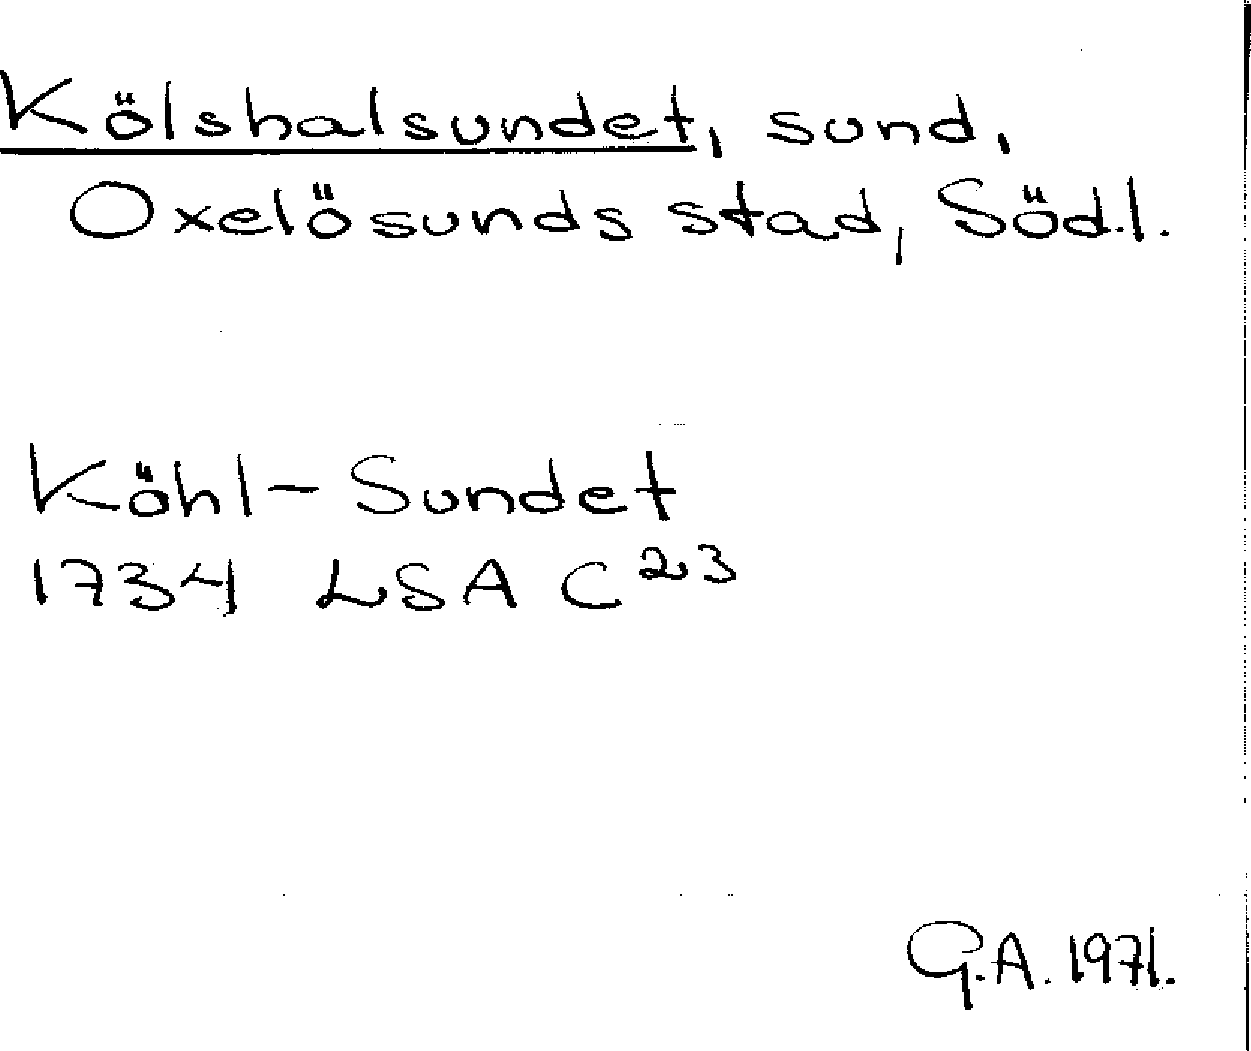 Kölshalsundet, sund,
Oxelösunds stad, Södl.
Köhl-Sundet
1734 LSA C²³
G.A. 1971.